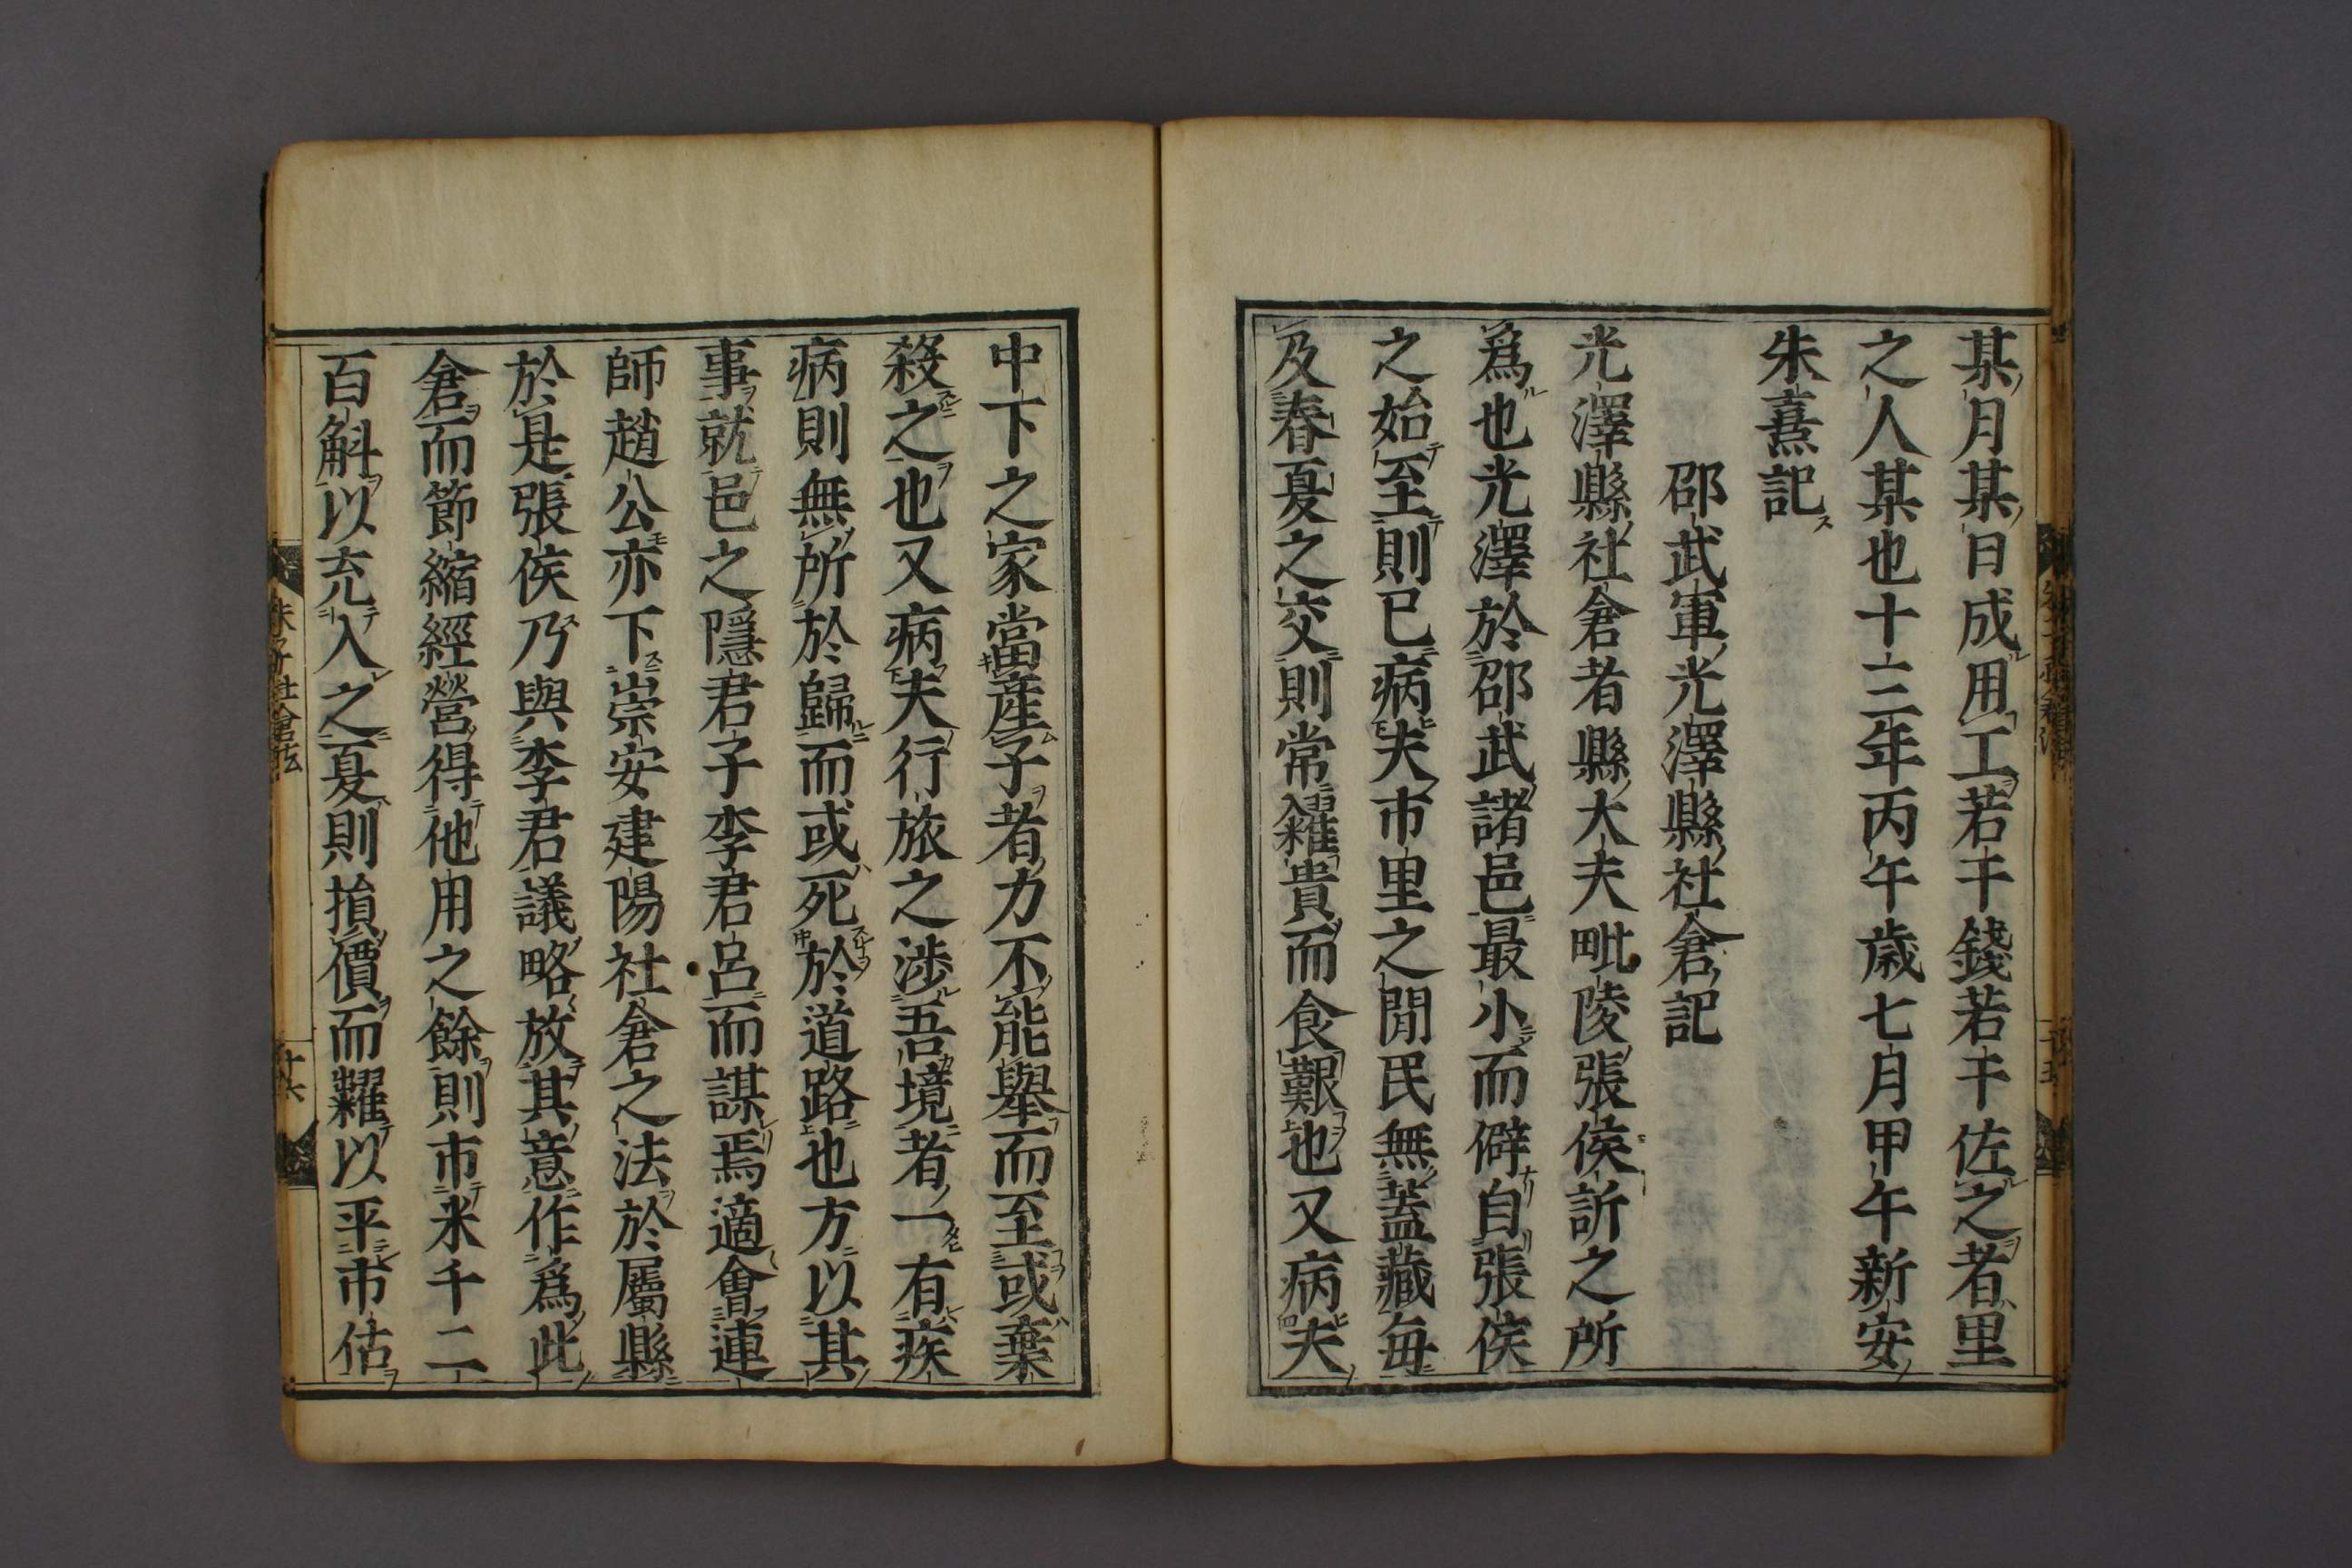 某月某日成用工若干錢若干佐之者里
之人某也十三年丙午歳七月甲午新安
朱熹記
邵武軍光澤縣社倉記
光澤縣社倉者縣大夫毗陵張侯訢之所
爲也光澤於邵武諸邑最小而僻自張侯
之始至則已病夫市里之閒民無蓋藏毎
及春夏之交則常糴貴而食艱也又病夫
中下之家當産子者力不能舉而至或棄
殺之也又病夫行旅之渉吾境者一有疾
病則無所於歸而或死於道路也方以其
事就邑之隱君子李君呂而謀焉適會連
師趙公亦下崇安建陽社倉之法於屬縣
於是張侯乃與李君議略放其意作爲此
倉而節縮經營得他用之餘則市米千二
百斛以充入之夏則損價而糶以平市估
朱子社倉法
十六